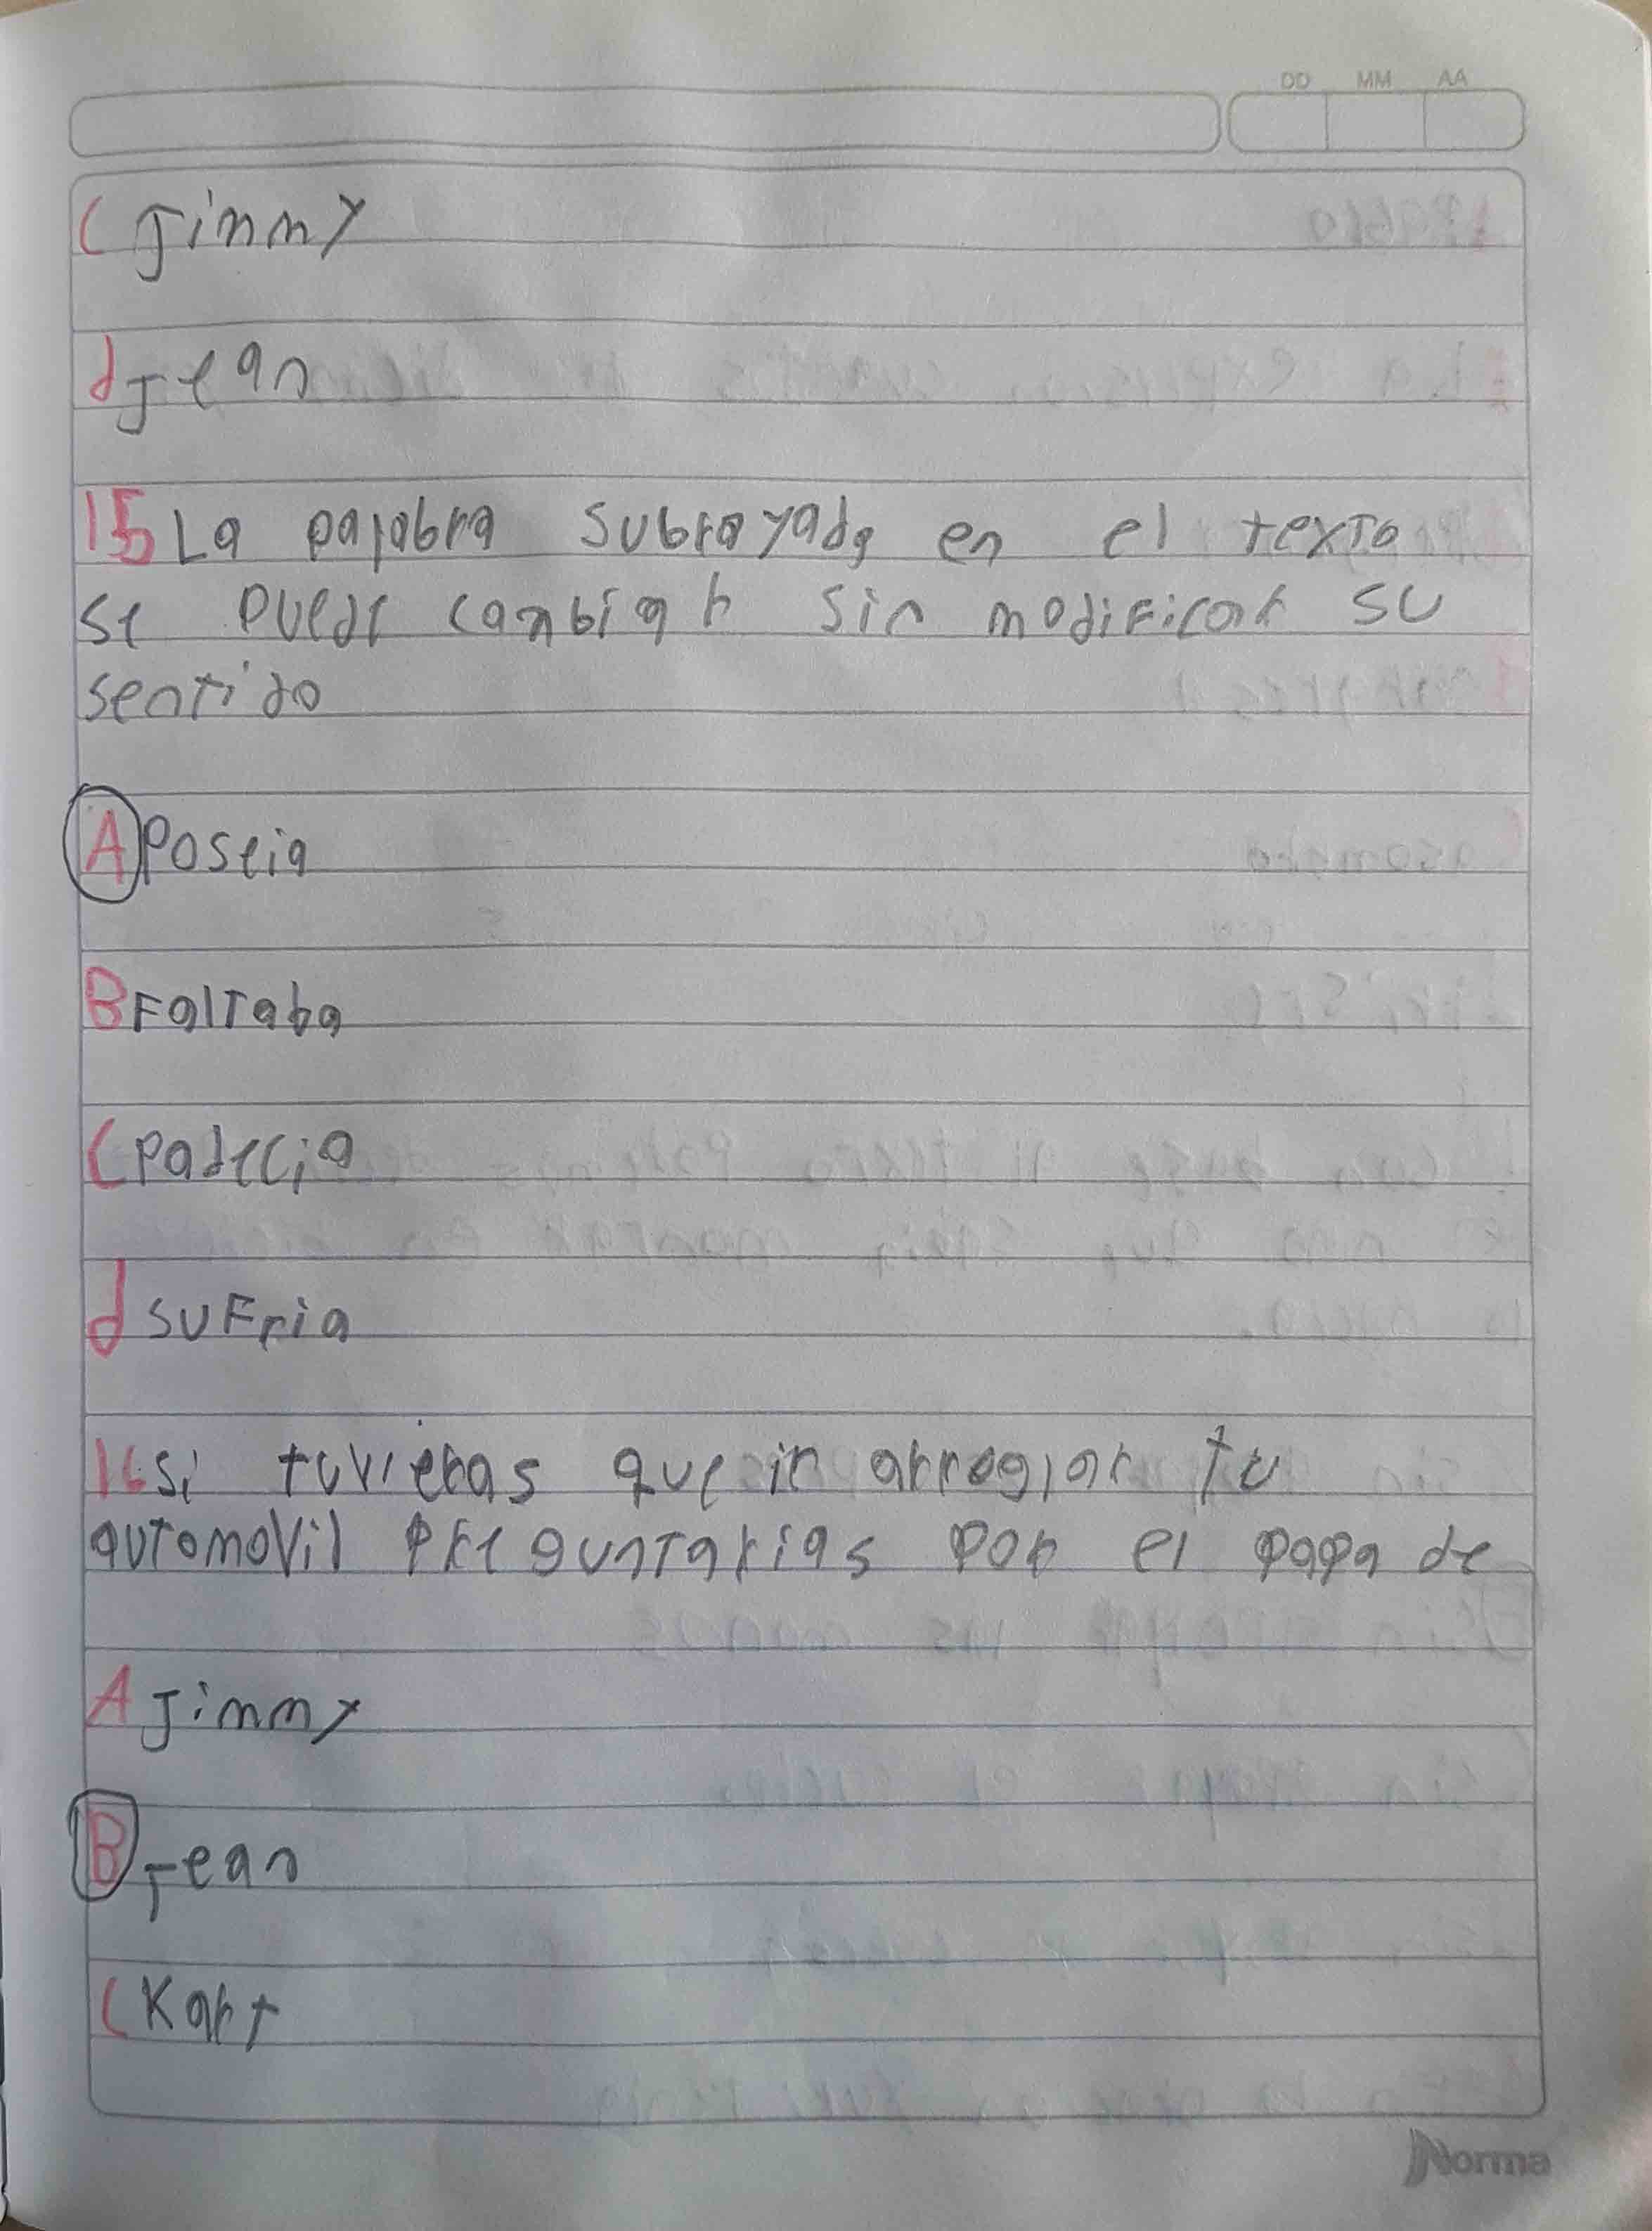 DD MM AA
C Jimmy
d Jean
15 La palabra subrayada en el texto
se puede cambiar sin modificar su
sentido
A Poseia
B Faltaba
C Padecia
d suFria
16 si tuvieras que ir arreglar tu
automovil preguntarias por el papa de
A Jimmy
B Jean
C Kart
Norma